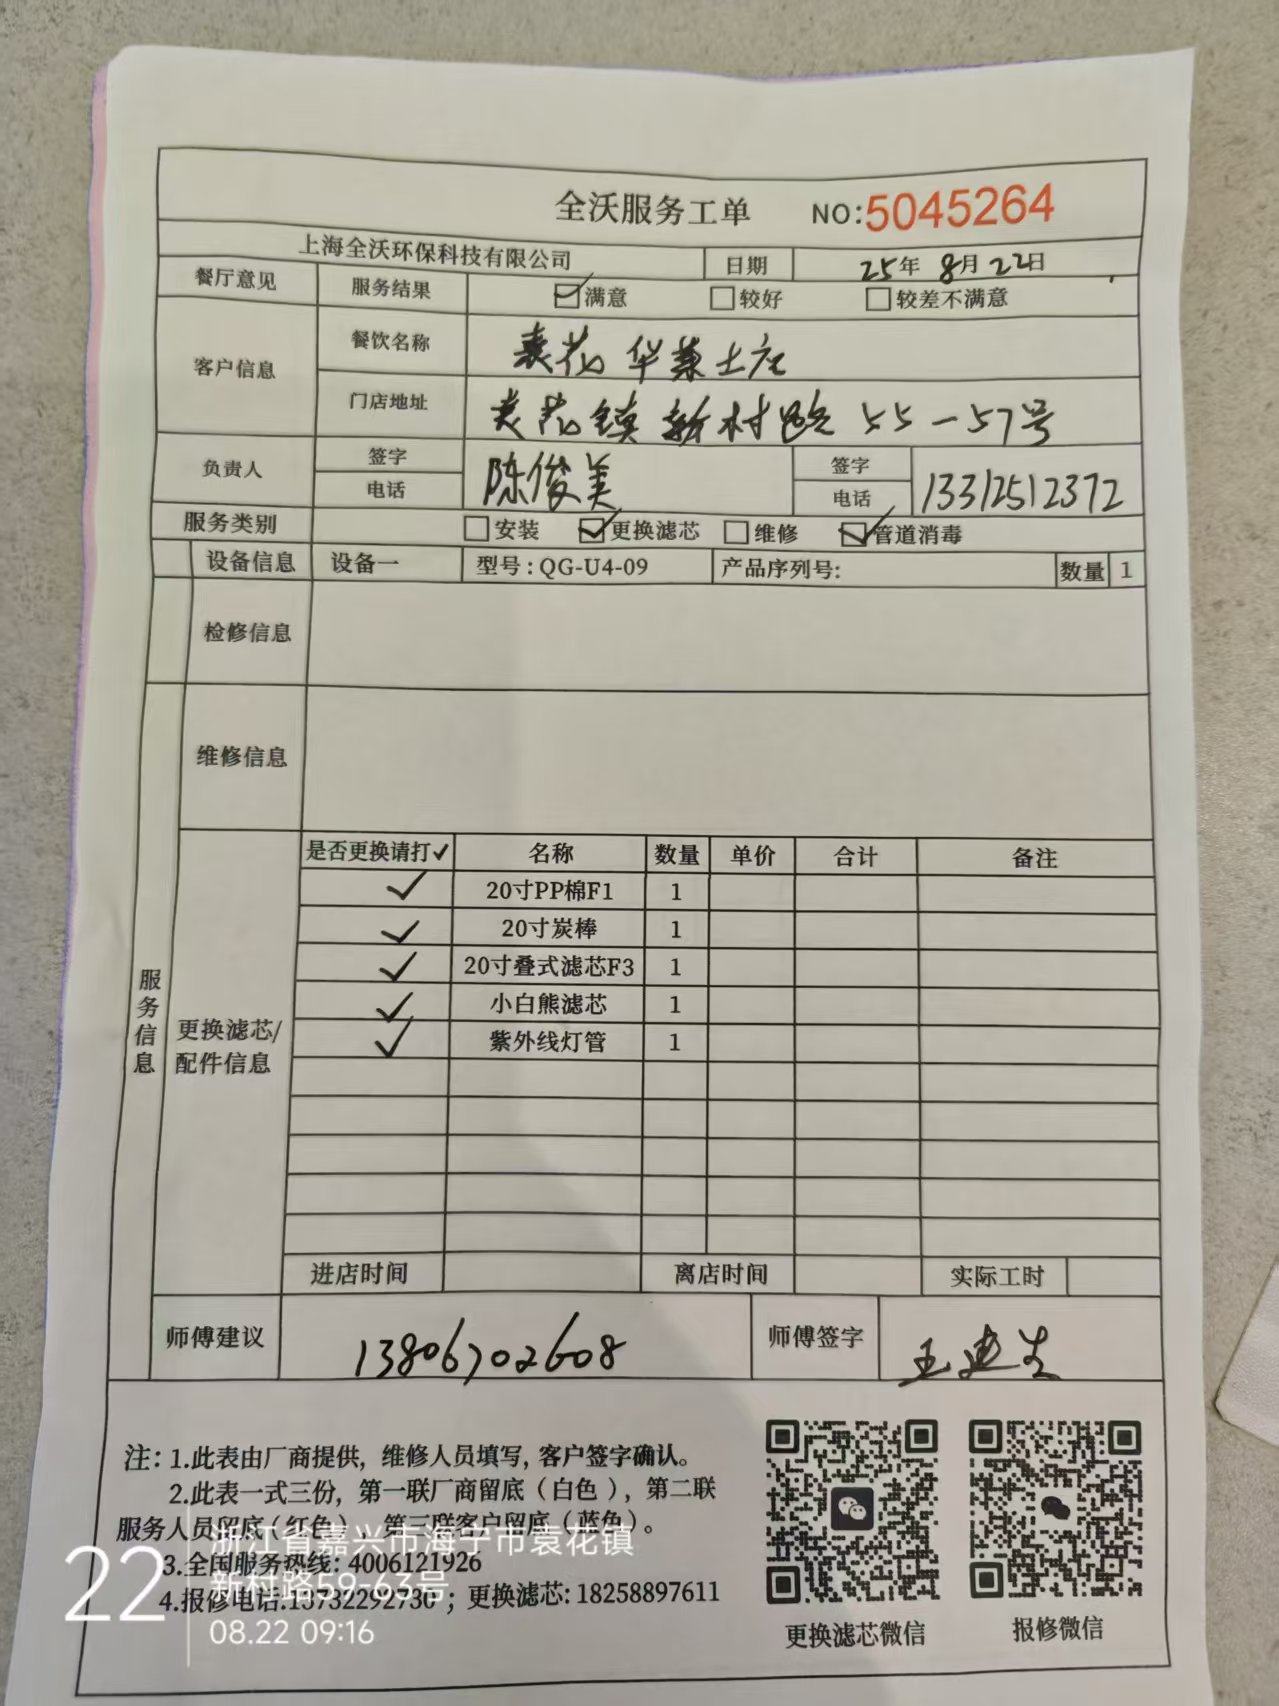 全沃服务工单 NO:5045264
上海全沃环保科技有限公司 日期 25年 8月 22日
餐厅意见 服务结果 满意 较好 较差不满意
客户信息 餐饮名称 袁花华莱士店
门店地址 袁花镇新村路55-57号
负责人 签字 陈俊美 签字
电话 电话 13312512372
服务类别 安装 更换滤芯 维修 管道消毒
设备信息 设备一 型号:QG-U4-09 产品序列号: 数量 1
检修信息
维修信息
服务信息
更换滤芯/配件信息
是否更换请打✓ 名称 数量 单价 合计 备注
✓ 20寸PP棉F1 1
✓ 20寸炭棒 1
✓ 20寸叠式滤芯F3 1
✓ 小白熊滤芯 1
✓ 紫外线灯管 1
进店时间 离店时间 实际工时
师傅建议 13806702608 师傅签字
注: 1.此表由厂商提供, 维修人员填写, 客户签字确认。
2.此表一式三份, 第一联厂商留底（白色）, 第二联
服务人员留底（红色）, 第三联客户留底（蓝色）。
3.全国服务热线: 4006121926
4.报修电话:13732292730 ; 更换滤芯: 18258897611
更换滤芯微信 报修微信
22
浙江省嘉兴市海宁市袁花镇
新村路59-63号
08.22 09:16